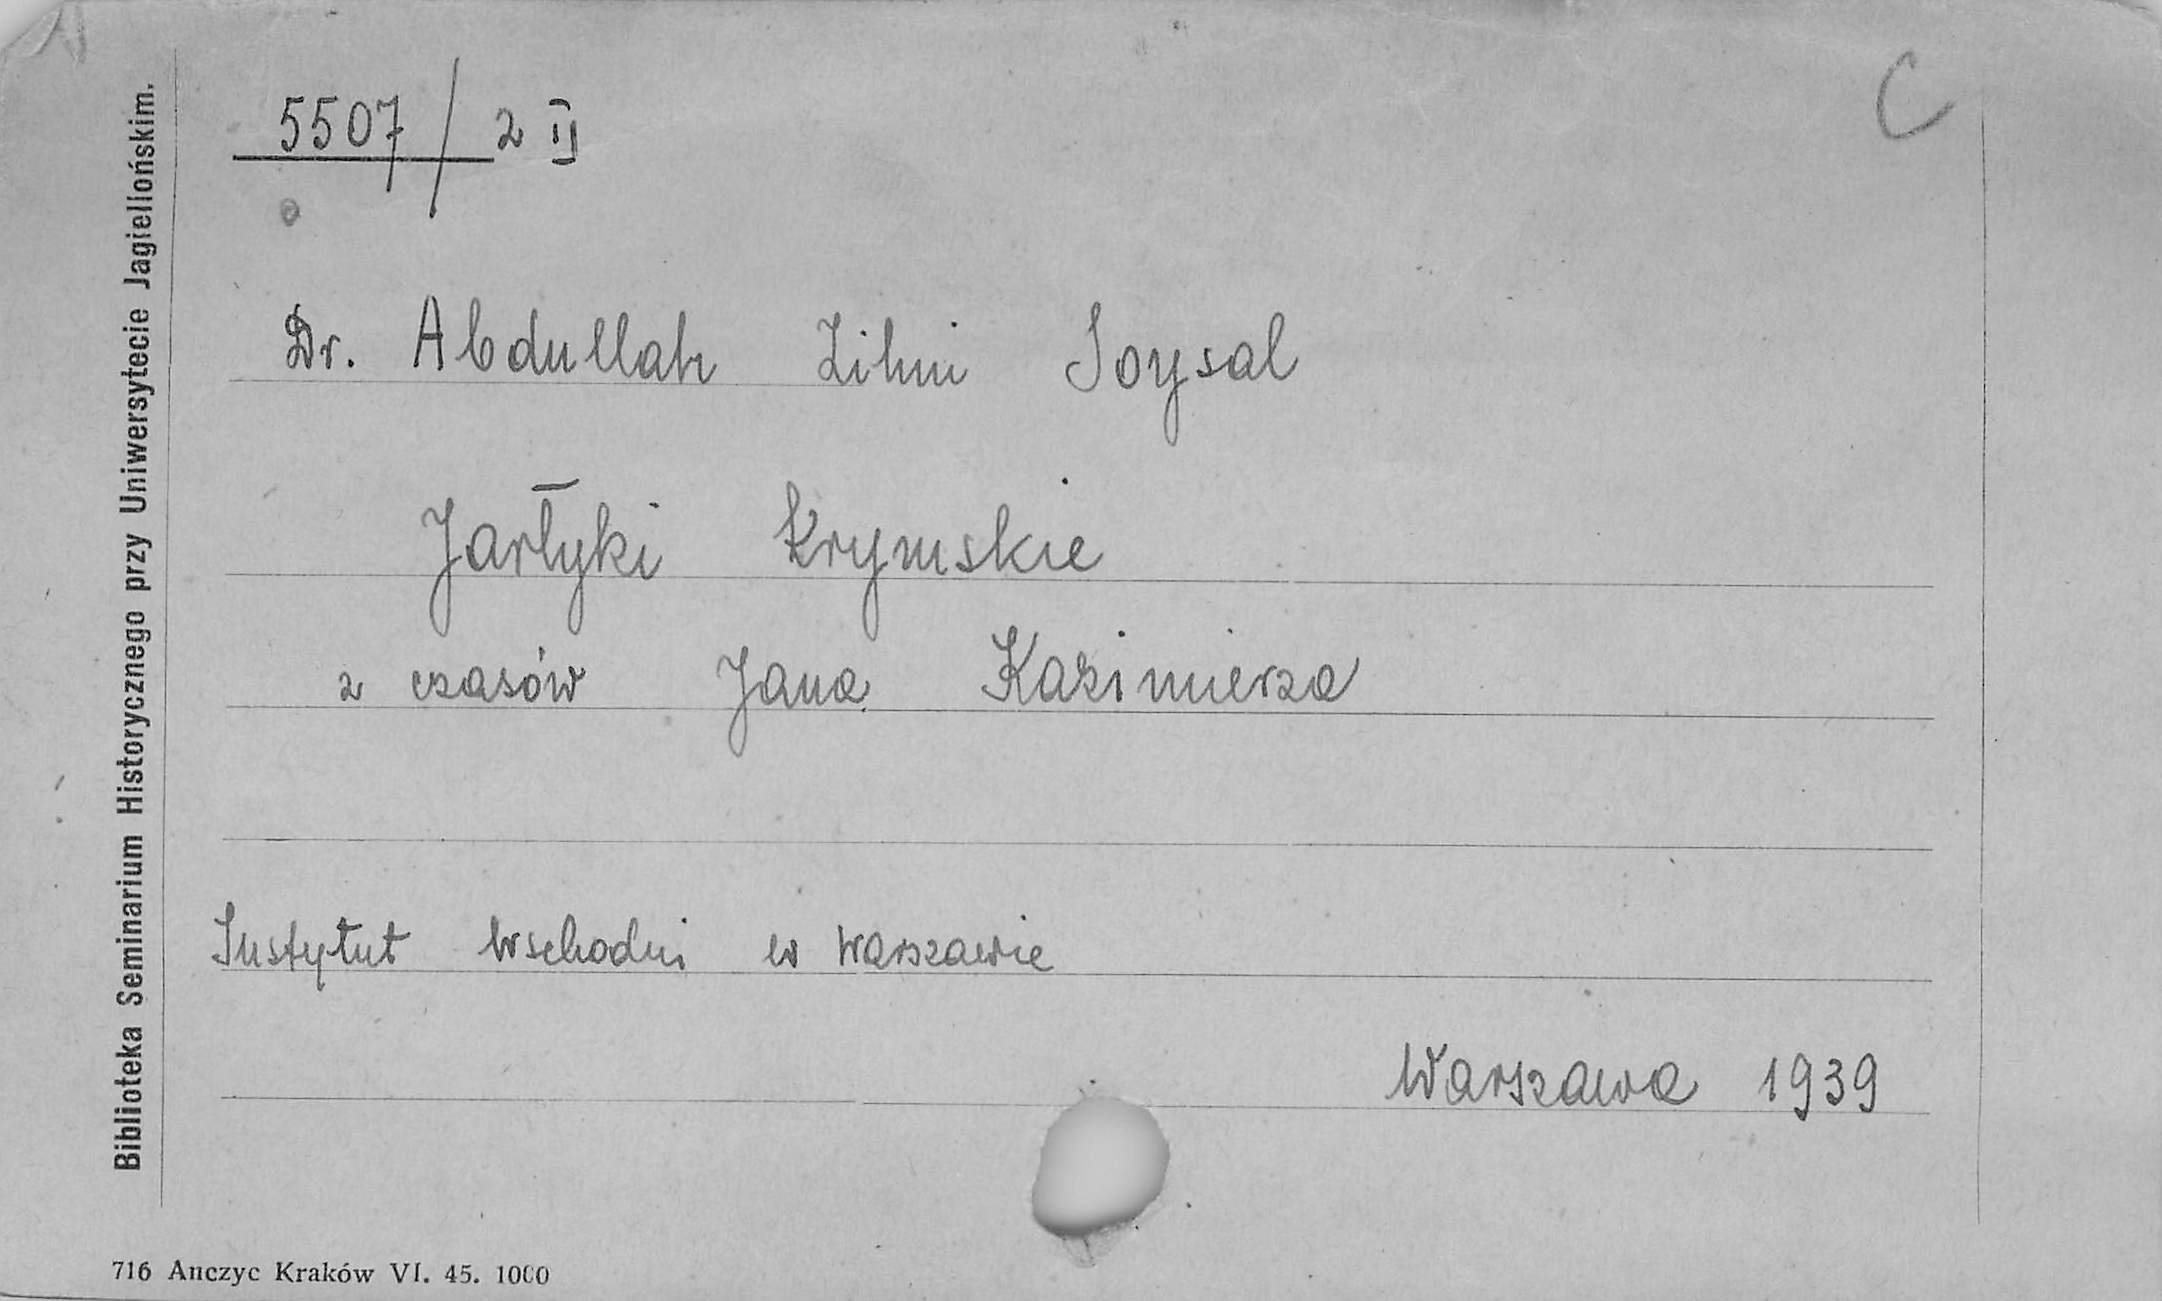 Biblioteka Seminarium Historycznego przy Uniwersytecie Jagiellońskim.
5507/2 II
C
Dr. Abdullah Zihni Soysal
Jarłyki Krymskie
z czasów Jana Kazimierza
Instytut Wschodni w Warszawie
Warszawa 1939
716 Anczyc Kraków VI. 45. 1000